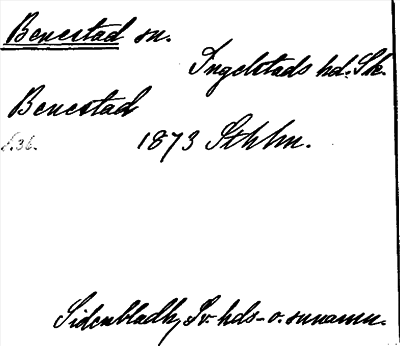 Benestad sn.
Ingelstads hd. Sk.
Benestad
s. 36.
1873 Sthlm.
Sidenbladh, Sv. hds- o. sunamn.